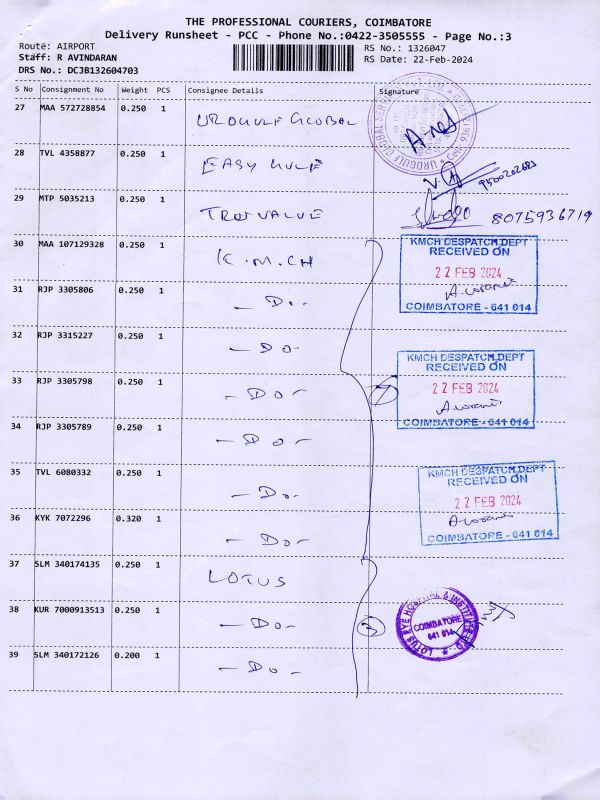 THE PROFESSIONAL COURIERS, COIMBATORE
Delivery Runsheet - PCC - Phone No.:0422-3505555 - Page No.:3
Route: AIRPORT
RS No.: 1326047
Staff: R AVINDARAN
RS Date: 22-Feb-2024
DRS No.: DCJB132604703
S No Consignment No Weight PCS Consignee Details Signature
27 MAA 572728854 0.250 1 UROGULF GLOBAL
28 TVL 4358877 0.250 1 EASY GULF
9500202683
29 MTP 5035213 0.250 1 TRUEVALUE 8075936719
30 MAA 107129328 0.250 1 K.M.CH
KMCH DESPATCH DEPT
RECEIVED ON
22 FEB 2024
COIMBATORE - 641 014
31 RJP 3305806 0.250 1 - Do -
32 RJP 3315227 0.250 1 - Do -
KMCH DESPATCH DEPT
RECEIVED ON
22 FEB 2024
COIMBATORE - 641 014
33 RJP 3305798 0.250 1 - Do - 7
34 RJP 3305789 0.250 1 - Do -
35 TVL 6080332 0.250 1 - Do -
KMCH DESPATCH DEPT
RECEIVED ON
22 FEB 2024
COIMBATORE - 641 014
36 KYK 7072296 0.320 1 - Do -
37 SLM 340174135 0.250 1 LOTUS
38 KUR 7000913513 0.250 1 - Do - 3
LOTUS EYE HOSPITAL & INSTITUTE LTD
COIMBATORE
641 014
39 SLM 340172126 0.200 1 - Do -